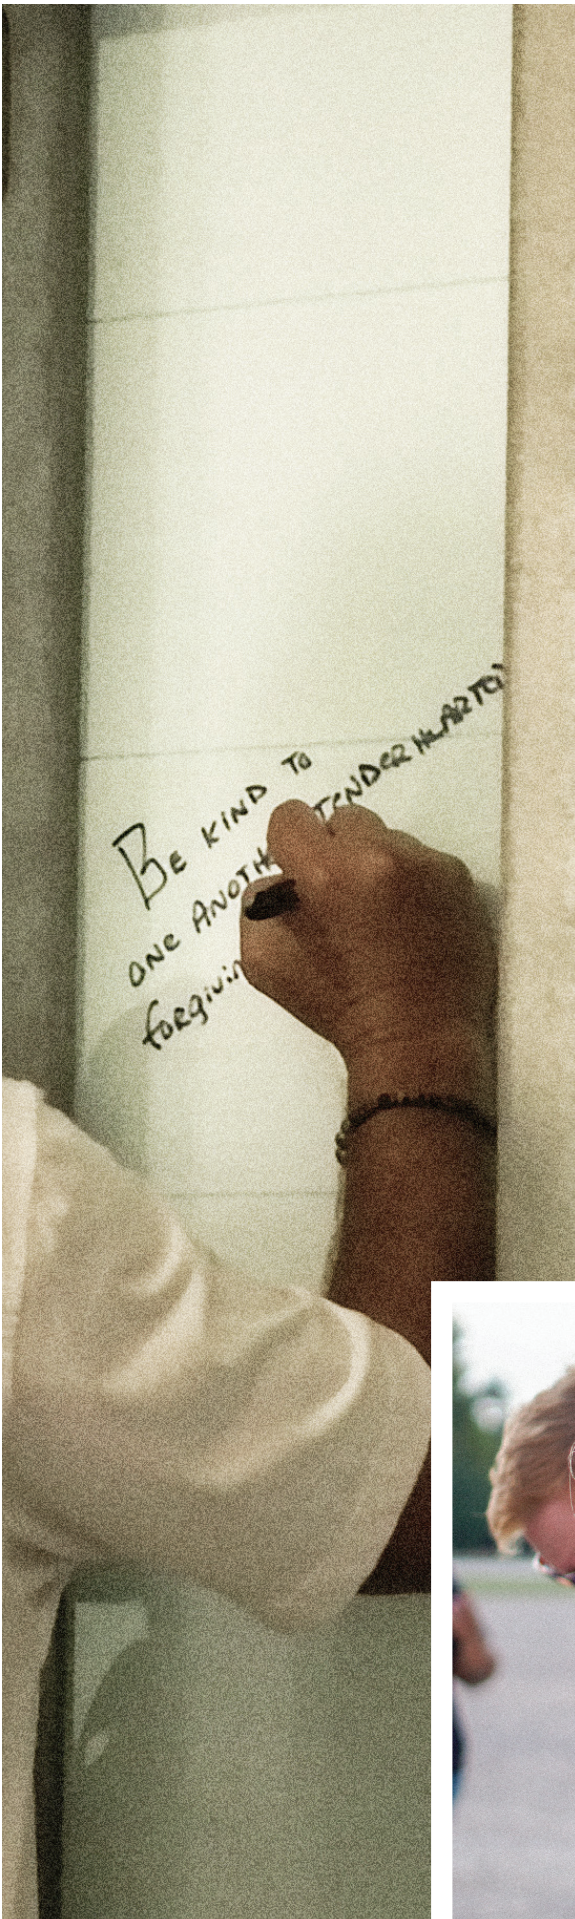 Be KIND TO
ONE ANOTHE TENDER HEARTED
forgivin